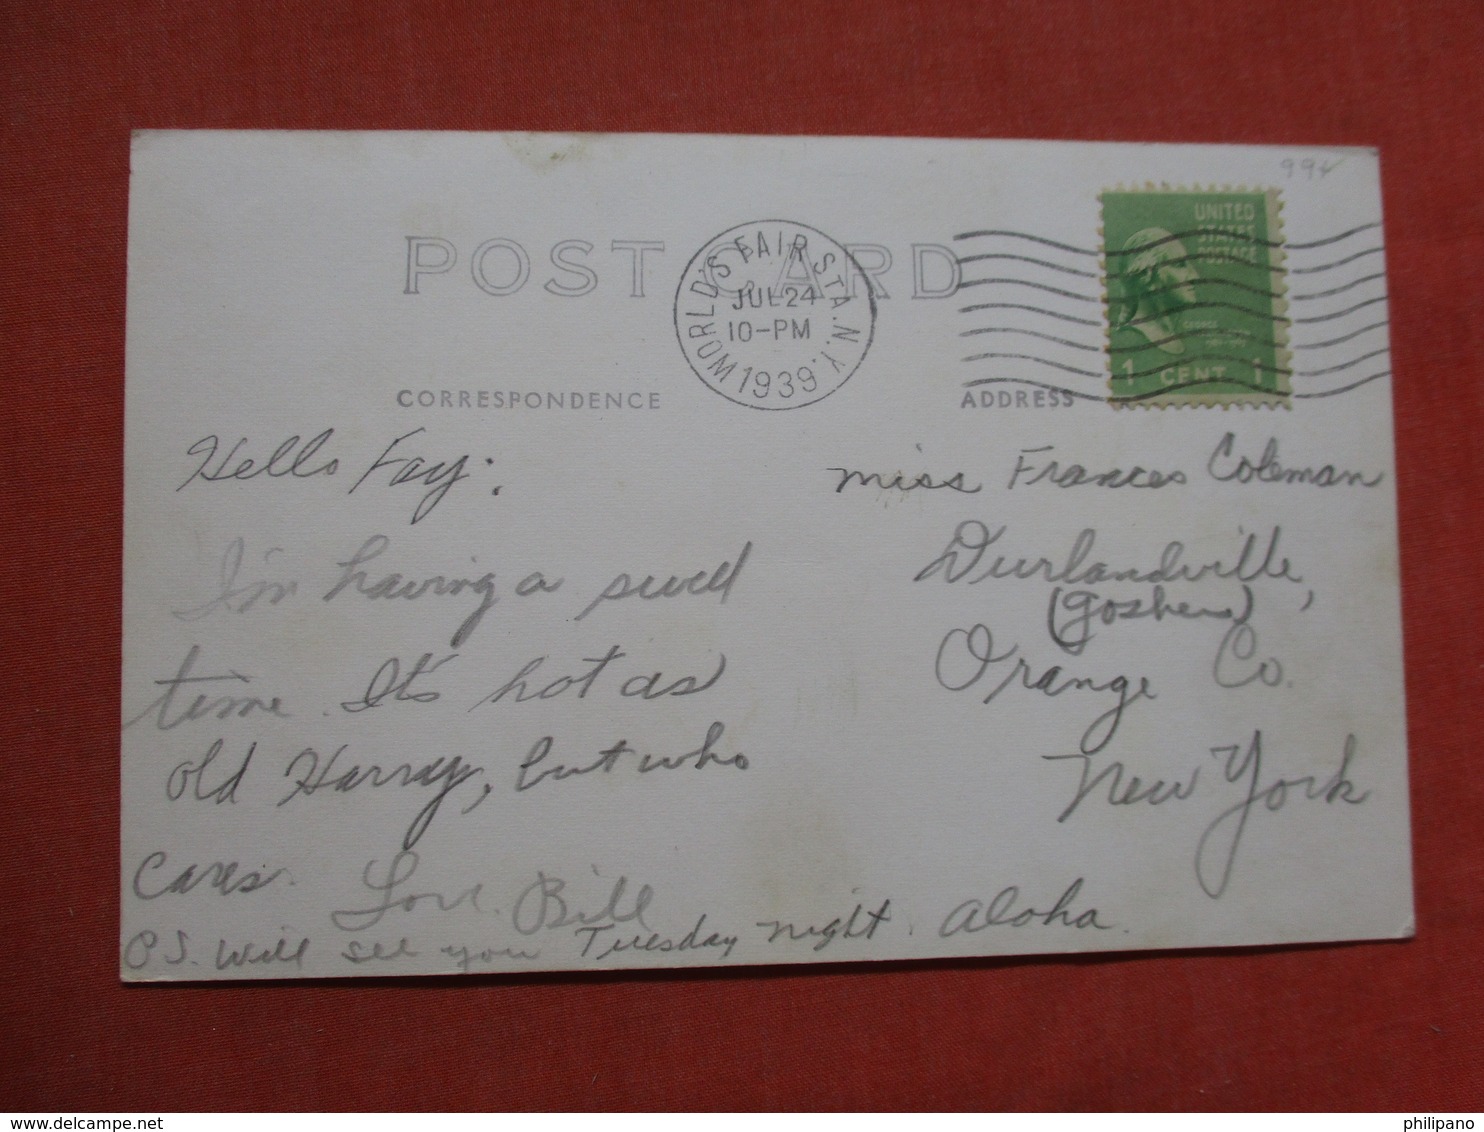 99¢
POST CARD
WORLD'S FAIR STA. N.Y.
JUL 24
10-PM
1939
UNITED
STATES
POSTAGE
1 CENT 1
CORRESPONDENCE
ADDRESS
Hello Fay:
I'm having a swell
time. It's hot as
old Harry, but who
cares. Love. Bill
P.S. Will see you Tuesday night. Aloha.
Miss Frances Coleman
Durlandville,
(Goshen)
Orange Co.
New York
philipano